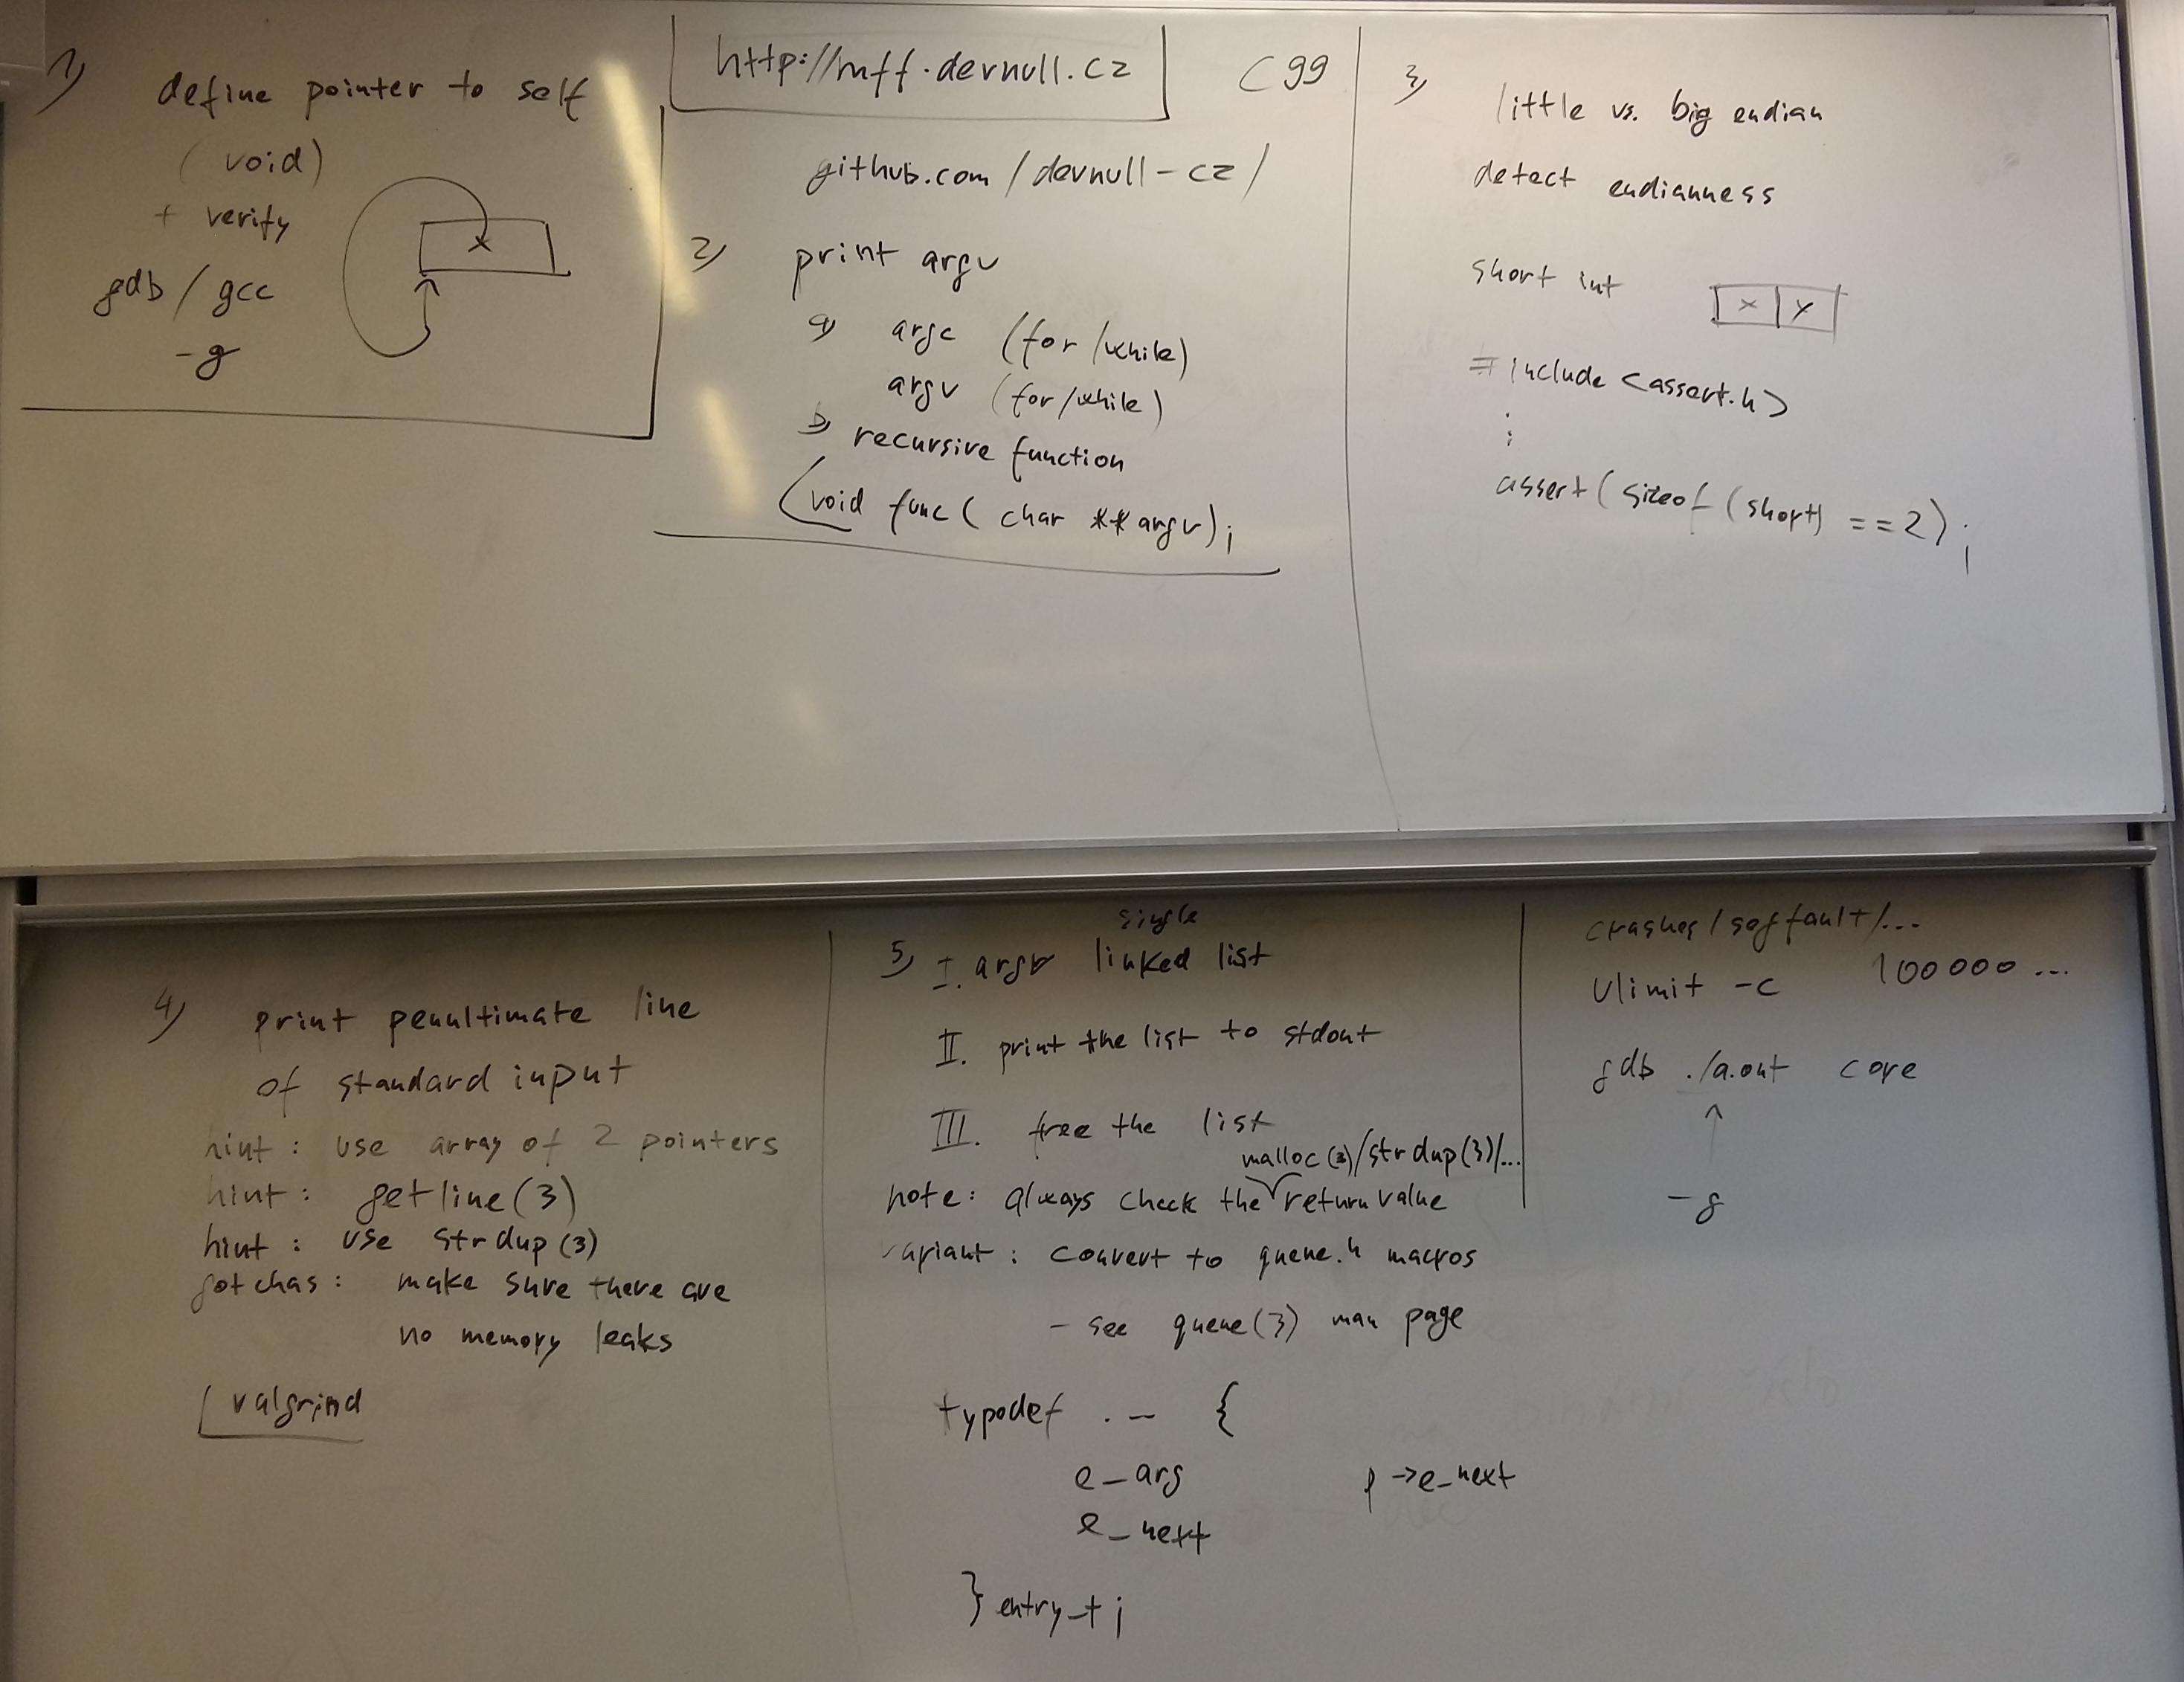 1)
define pointer to self
(void)
+ verify
gdb / gcc
-g
x
http://mff.devnull.cz
C99
github.com/devnull-cz/
2)
print argv
a) argc (for/while)
argv (for/while)
b) recursive function
(void func( char **argv);
3)
little vs. big endian
detect endianness
short int
x y
#include <assert.h>
:
assert(sizeof(short) == 2);
4)
print penultimate line
of standard input
hint: use array of 2 pointers
hint: getline(3)
hint: use strdup(3)
gotchas: make sure there are
no memory leaks
valgrind
single
5) I. argv linked list
II. print the list to stdout
III. free the list
malloc(3)/strdup(3)/...
note: always check the return value
variant: convert to queue.h macros
- see queue(3) man page
typedef .. {
e_arg
p->e_next
e_next
} entry_t;
crashes/segfault/...
ulimit -c 100000...
gdb ./a.out core
-g